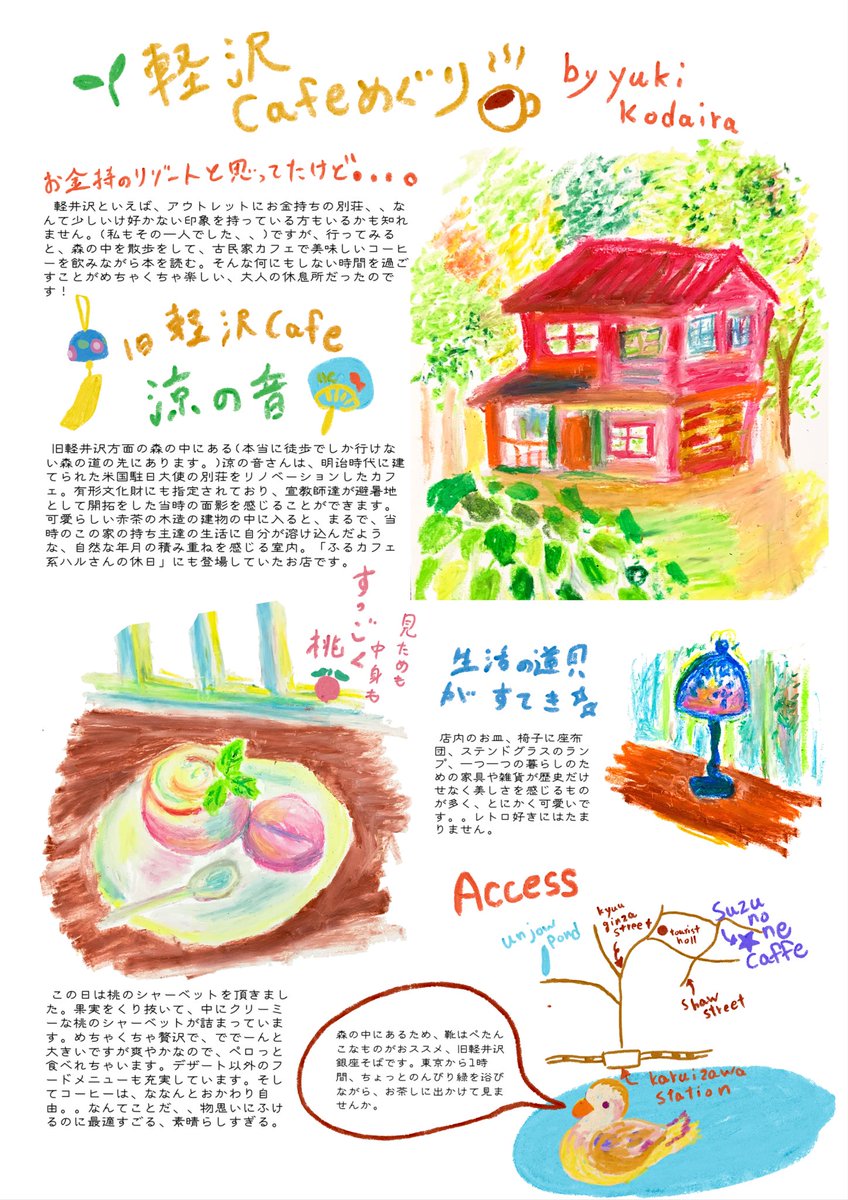 軽沢
Cafeめぐり
by yuki
kodaira
お金持のリゾートと思ってたけど....。
軽井沢といえば、アウトレットにお金持ちの別荘、、な
んて少しいけ好かない印象を持っている方もいるかも知れ
ません。(私もその一人でした、、)ですが、行ってみる
と、森の中を散歩をして、古民家カフェで美味しいコーヒ
ーを飲みながら本を読む。そんな何にもしない時間を過ご
すことがめちゃくちゃ楽しい、大人の休息所だったので
す！
旧軽沢Cafe
涼の音
旧軽井沢方面の森の中にある(本当に徒歩でしか行けな
い森の道の先にあります。)涼の音さんは、明治時代に建
てられた米国駐日大使の別荘をリノベーションしたカフ
ェ。有形文化財にも指定されており、宣教師達が避暑地
として開拓をした当時の面影を感じることができます。
可愛らしい赤茶の木造の建物の中に入ると、まるで、当
時のこの家の持ち主達の生活に自分が溶け込んだよう
な、自然な年月の積み重ねを感じる室内。「ふるカフェ
系ハルさんの休日」にも登場していたお店です。
見ためも
中身も
すっごく
桃
生活の道具
がすてき
店内のお皿、椅子に座布
団、ステンドグラスのラン
プ、一つ一つの暮らしのた
めの家具や雑貨が歴史だけ
せなく美しさを感じるもの
が多く、とにかく可愛いで
す。。レトロ好きにはたま
りません。
この日は桃のシャーベットを頂きまし
た。果実をくり抜いて、中にクリーミ
ーな桃のシャーベットが詰まっていま
す。めちゃくちゃ贅沢で、ででーんと
大きいですが爽やかなので、ペロっと
食べれちゃいます。デザート以外のフ
ードメニューも充実しています。そし
てコーヒーは、ななんとおかわり自
由。。なんてことだ、、物思いにふけ
るのに最適すごる、素晴らしすぎる。
Access
unjow
pond
kyuu
ginza
street
tourist
holl
Suzu
no
ne
caffe
shaw
street
karuizawa
station
森の中にあるため、靴はぺたん
こなものがおススメ、旧軽井沢
銀座そばです。東京から1時
間、ちょっとのんびり緑を浴び
ながら、お茶しに出かけて見ま
せんか。